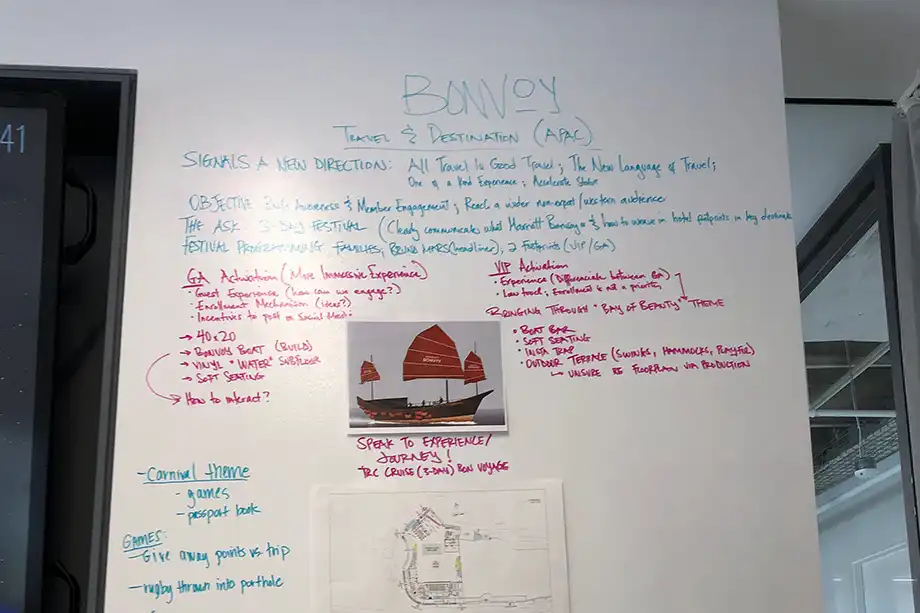 41
BONVOY
TRAVEL & DESTINATION (APAC)
SIGNALS A NEW DIRECTION: All Travel Is Good Travel; The New Language of Travel;
One of a Kind Experience; Accelerate Status
OBJECTIVE Awareness & Member Engagement; Reach a wider non-expat/western audience
THE ASK 3-DAY FESTIVAL (Clearly communicate what Marriott Bonvoy & how to weave in hotel footprints in key
FESTIVAL PROGRAMMING FAMILIES, BRUNO MARS (headline), 2 Footprints (VIP/GA)
GA Activation (More Immersive Experience)
• Guest Experience (how can we engage?)
• Enrollment Mechanism (ideas?)
• Incentives to post on Social Media
→ 40x20
→ BONVOY BOAT (BUILD)
→ VINYL "WATER" SUBFLOOR
→ SOFT SEATING
→ How to interact?
VIP Activation
• Experience (Differentiate between GA)
• Low food; Enrollment is not a priority
BRINGING THROUGH "BAY OF BEAUTY" THEME
• BOAT BAR
• SOFT SEATING
• INSTA TRAP
• OUTDOOR TERRACE (SWINKS, HAMMOCKS, PLAYFUL)
↳ UNSURE FLOORPLAN VIA PRODUCTION
BONVOY
SPEAK TO EXPERIENCE/
JOURNEY!
CRUISE (3-DAY) BON VOYAGE
- Carnival theme
- games
- passport book
GAMES:
- Give away points vs. trip
- rugby thrown into porthole